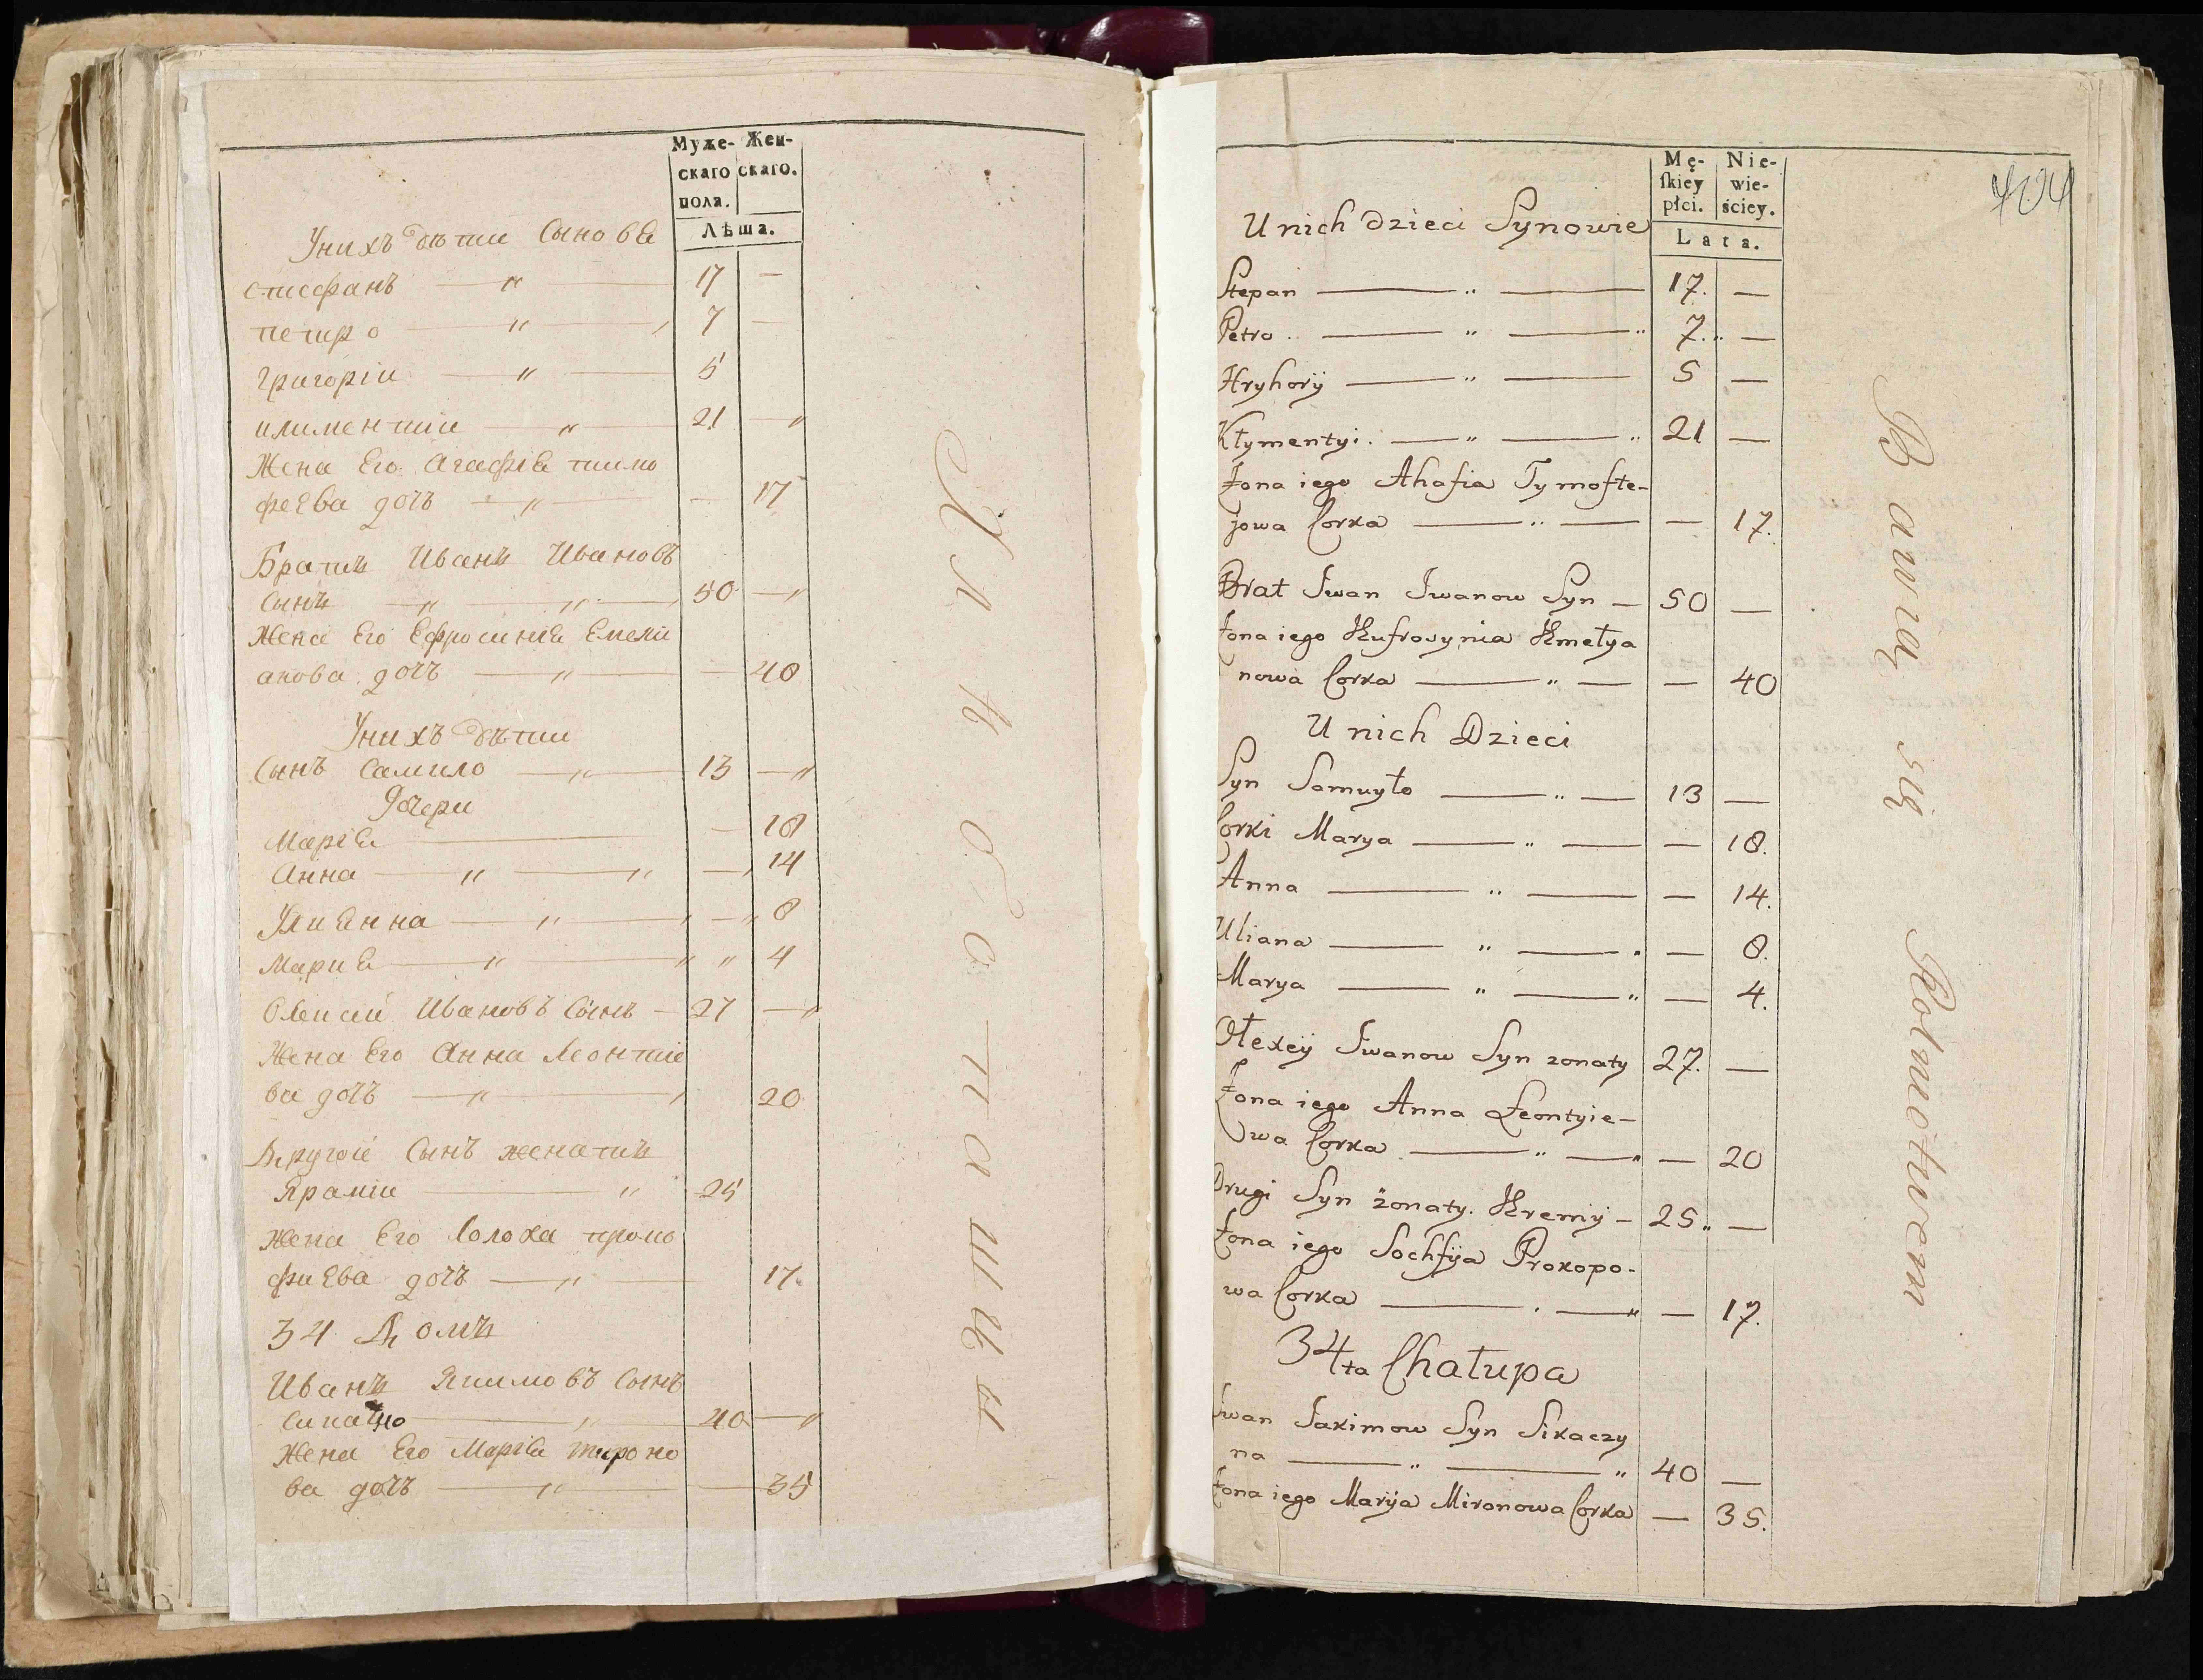 Муже-
скаго
пола.
Жен-
скаго.
Лѣта.
Унихъ дѣти Сыновя
стесфанъ — " — 17 —
петро — " — 7 —
Григоріи — " — 5
климентии — " — 21 — "
Жена Его Агафія тимо
феева дочъ — " — — 17
Братъ Иванъ Ивановъ
Сынъ — " — " — 50 — "
Жена Его Ефросиня Емели
анова дочъ — " — — 40
Унихъ дѣти
Сынъ Самило — " — 13 — "
Дочери
Марія — — 18
Анна — " — " — 14
Улиянна — " — — " 8
Мария — " — " " 4
Олексий Ивановъ Сынъ — 27 — "
Жена Его Анна Леонтие
ва дочъ — " — 20
Другой Сынъ женатъ
Яремии — " 25
Жена Его Солоха проко
фиева дочъ — " — 17.
34 Домъ
Иванъ Якимовъ Сынъ
— " — 40 — "
Жена Его Марія миронo
ва дочъ — " — — 35
Хлѣбопашцы
Mę-
ſkiey
płci.
Nie-
wie-
ściey.
Lata.
404
U nich dzieci Synowie
Stepan — " — 17. —
Petro . — " — " 7. " —
Hryhorÿ — " — 5 —
Kłymentyi . — " — " 21 —
Żona iego Ahafia Tymofte-
jowa Corka — " — — 17.
Brat Iwan Iwanow Syn — 50 —
Żona iego Eufrosynia Emelya
nowa Corka — " — — 40
U nich Dzieci
Syn Samuyło — " — 13 —
Corki Marya — " — — 18.
Anna — " — — 14.
Uliana — " — " — 8.
Marya — " — " — 4.
Ołexeÿ Iwanow Syn zonaty 27. —
Żona iego Anna Leontyie-
wa Corka . — " — " — 20
Drugi Syn żonaty. Eremiÿ — 25 " —
Żona iego Sochfÿa Prokopo-
wa Corka — . — " — 17.
34ta Chałupa
Iwan Jakimow Syn Sikaczy
na — " — " 40 —
Żona iego Marÿa Mironowa Corka — 35.
Bawią się Rolnictwem